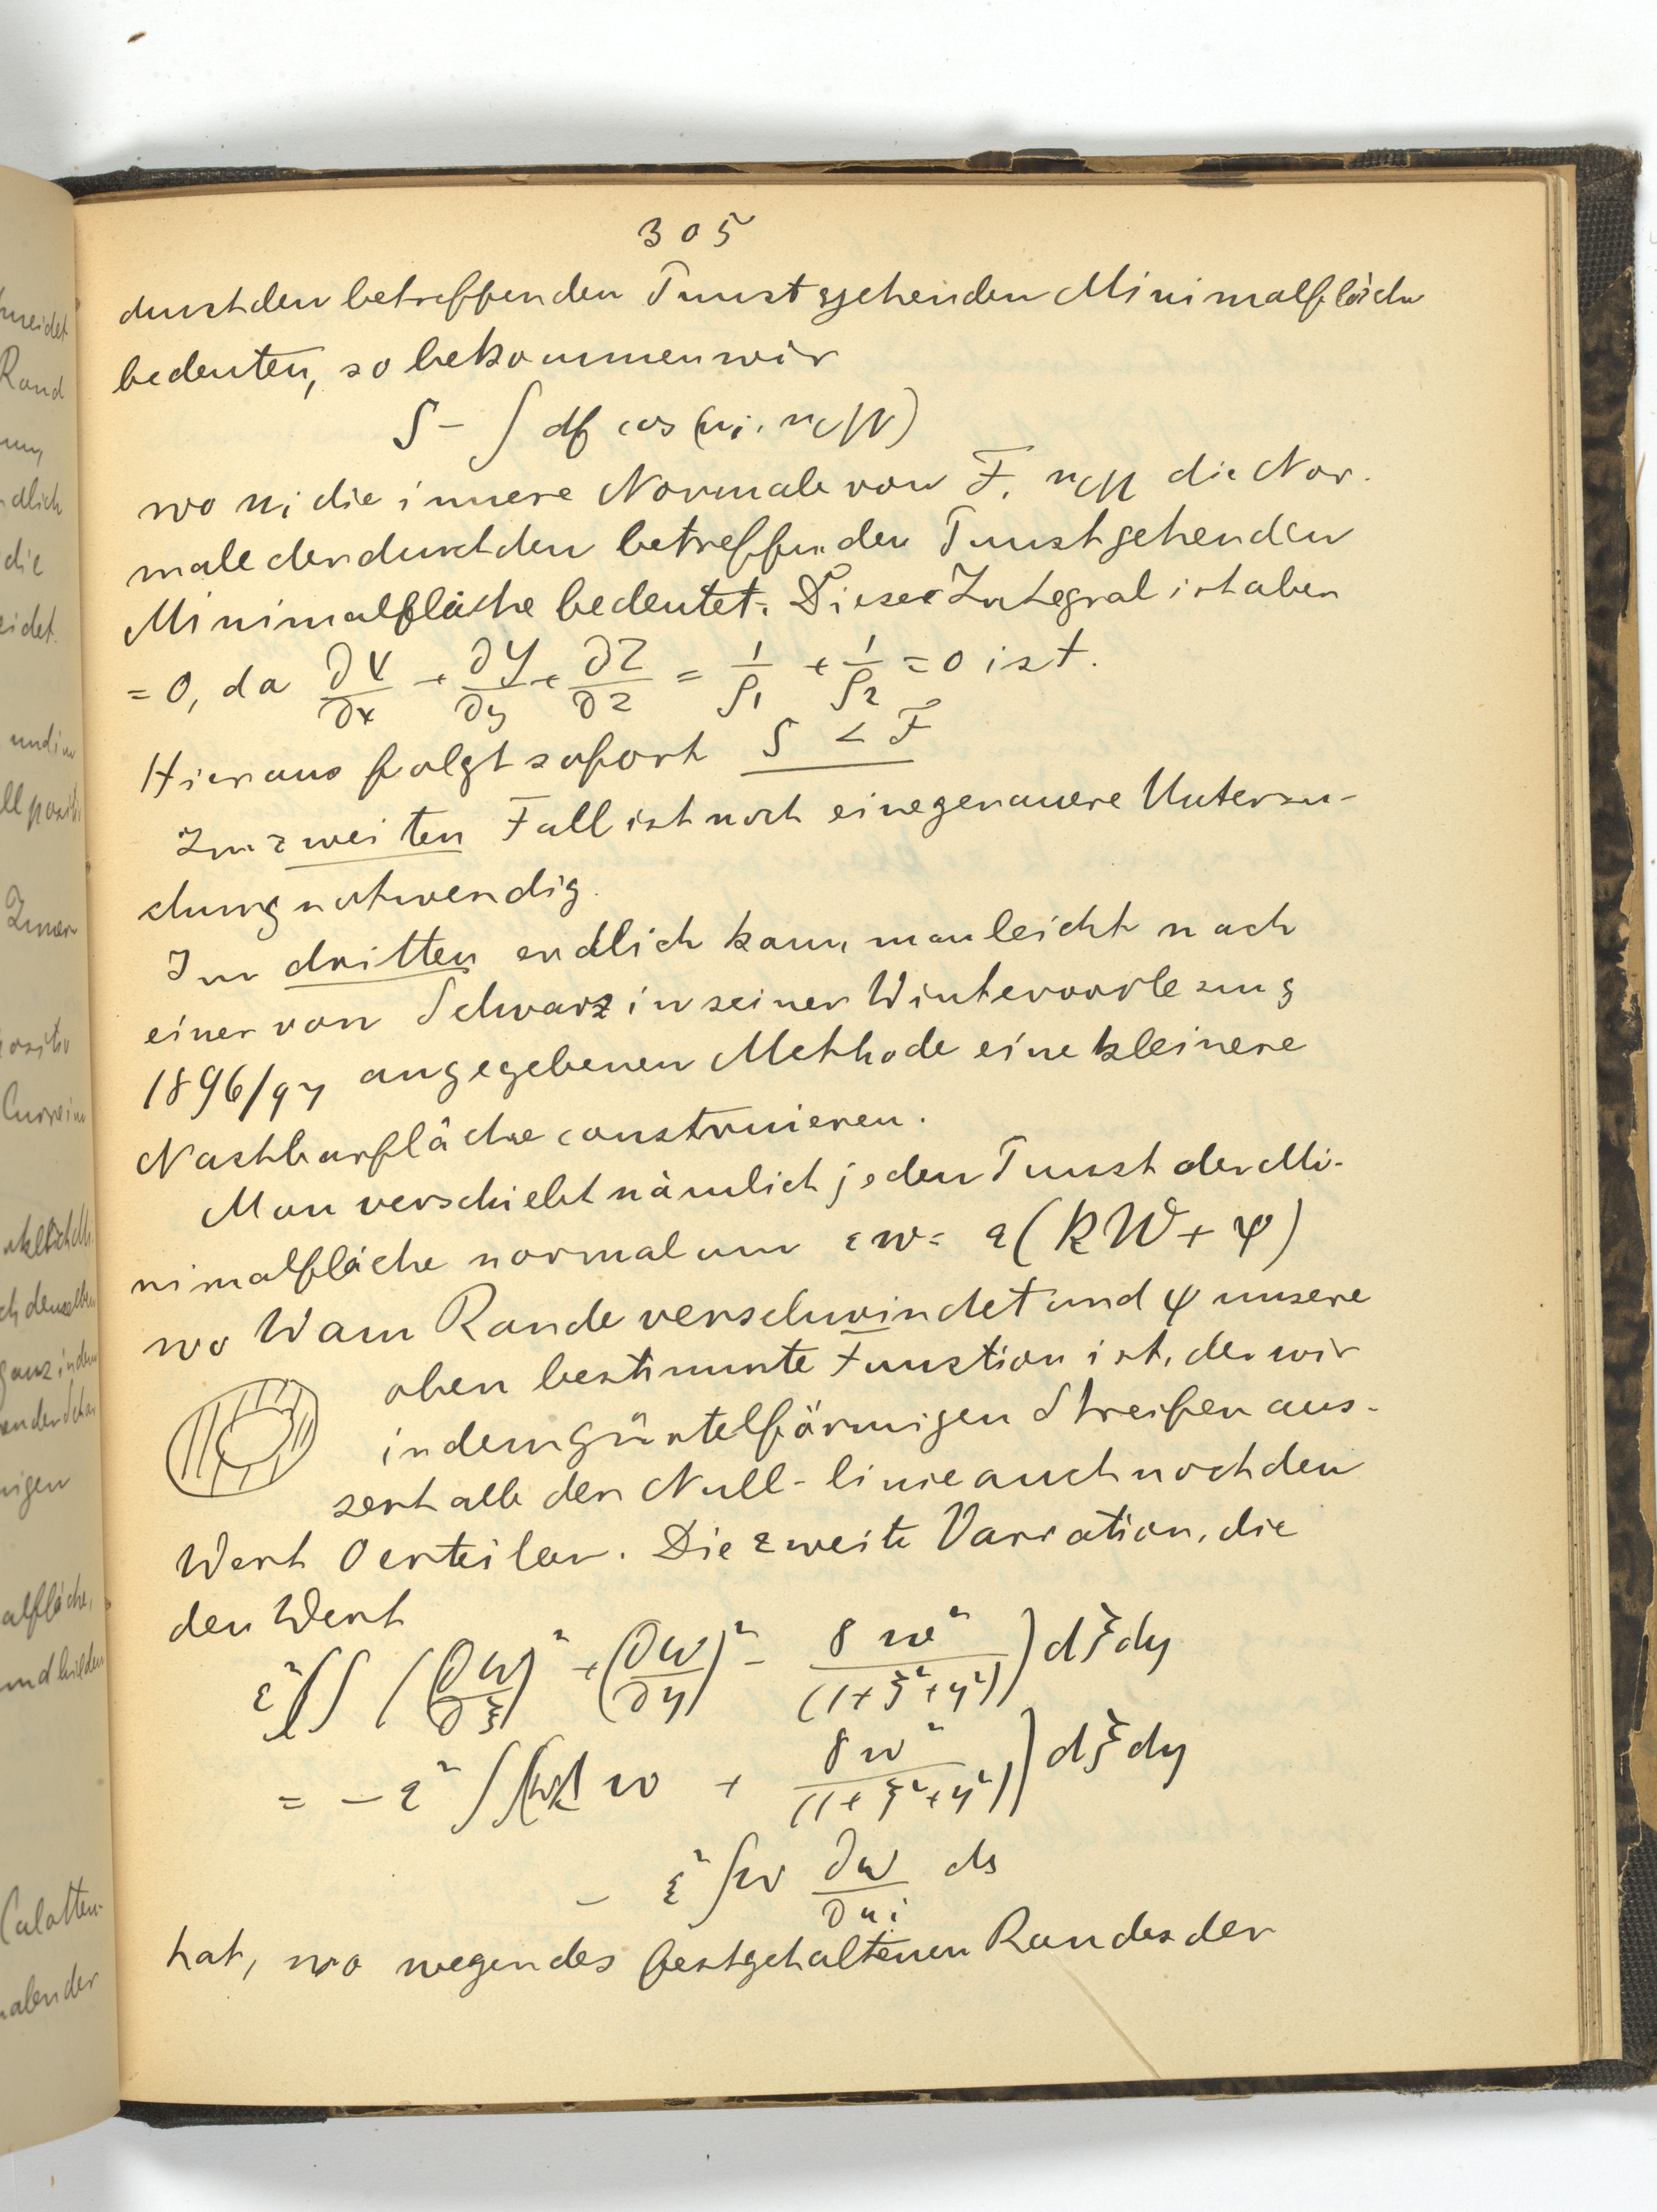 305
durch den betreffenden Punct gehenden Minimalfläche
bedeuten, so bekommen wir
S - ∫ df cos (n_i, n_M)
wo n_i die innere Normale von F, n_M die Nor-
male der durch den betreffenden Punct gehenden
Minimalfläche bedeutet. Dieses Integral ist aber
= 0, da ∂X/∂x + ∂Y/∂y + ∂Z/∂z = 1/ρ₁ + 1/ρ₂ = 0 ist.
Hieraus folgt sofort S < F
Im zweiten Fall ist noch eine genauere Untersu-
chung notwendig.
Im dritten endlich kann man leicht nach
einer von Schwarz in seiner Wintervorlesung
1896/97 angegebenen Methode eine kleinere
Nachbarfläche construieren.
Man verschiebt nämlich jeden Punct der Mi-
nimalfläche normal um εw = ε(kW + φ)
wo W am Rande verschwindet und φ unsere
oben bestimmte Function ist, der wir
in dem gürtelförmigen Streifen aus-
serhalb der Null-linie auch noch den
Wert 0 erteilen. Die zweite Variation, die
den Wert
ε² ∫∫ ((∂w/∂ξ)² + (∂w/∂η)² - 8w²/(1+ξ²+η²)) dξdη
= - ε² ∫∫ w + 8w²/(1+ξ²+η²)) dξdη
- ε² ∫w ∂w/∂n_i ds
hat, wo wegen des festgehaltenen Randes der